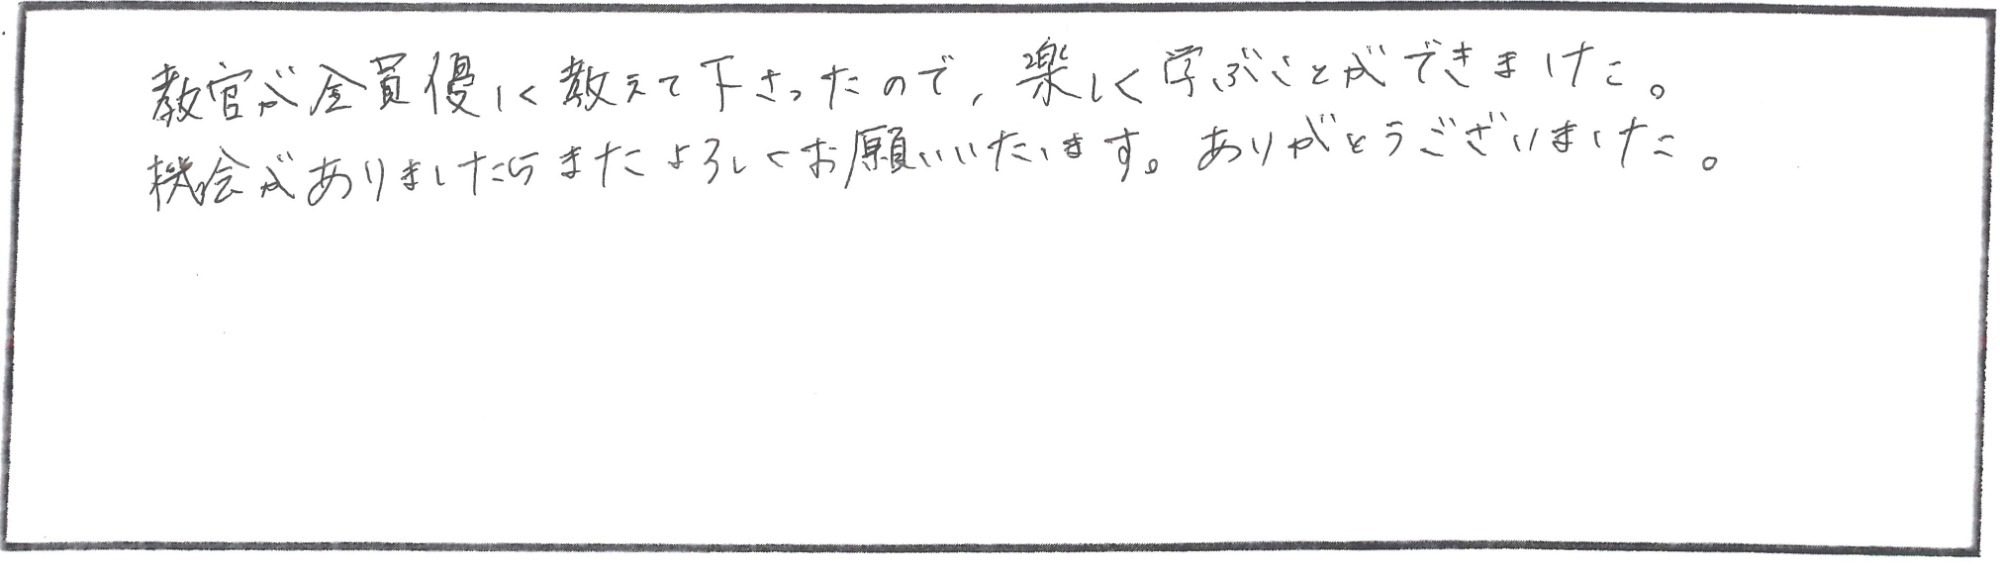 教官が全員優しく教えて下さったので、楽しく学ぶことができました。
機会がありましたらまたよろしくお願いいたします。ありがとうございました。